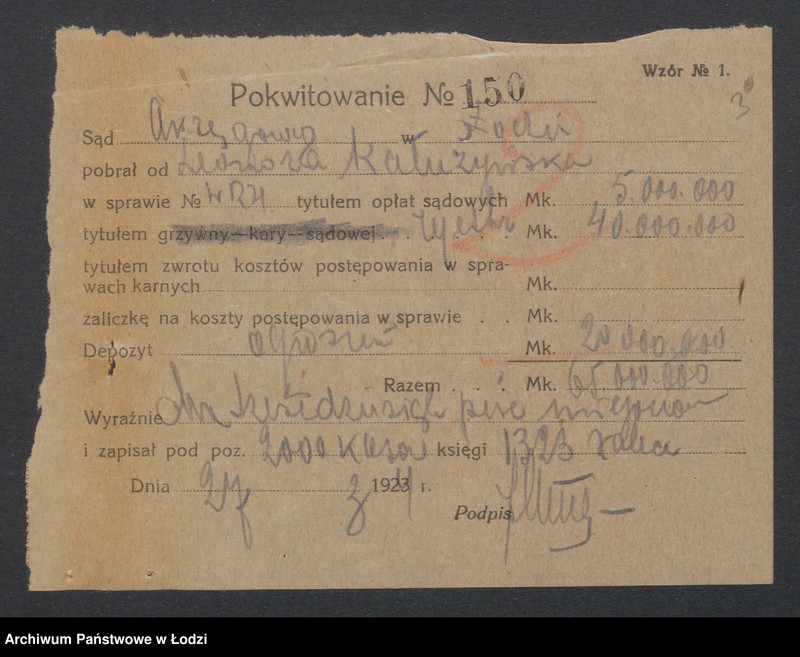 Wzór № 1.
Pokwitowanie № 150
3
Sąd Okręgowy w Łodzi
pobrał od Leonora Kałużyńska
w sprawie № tytułem opłat sądowych Mk. 5.000.000
tytułem grzywny—kary—sądowej . . . . Mk. 40.000.000
tytułem zwrotu kosztów postępowania w spra-
wach karnych Mk.
zaliczkę na koszty postępowania w sprawie . . Mk.
Depozyt ogłoszeń Mk. 20 000.000
Razem . . . Mk. 65.000.000
Wyraźnie Mr sześćdziesiąt pięć milionów
i zapisał pod poz. 2000 księgi 1323
Dnia 27 2 1924 r.
Podpis
Archiwum Państwowe w Łodzi